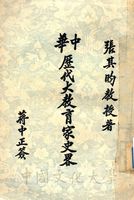 張其昀教授著
中華
歷代大教育家史畧
蔣中正簽
中國文化大學